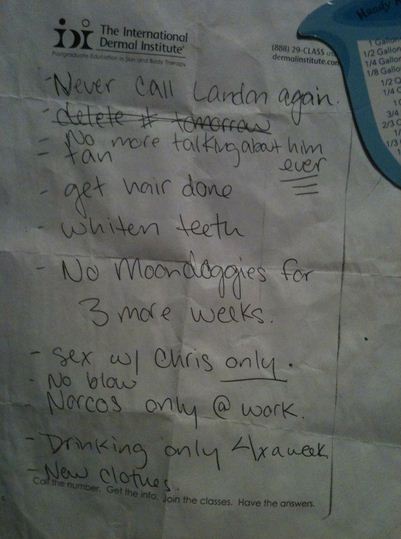 The International
Dermal Institute
Postgraduate Education in Skin and Body Therapy
(888) 29-CLASS
dermalinstitute.com
Handy
1 Gallon
1/2 Gallon
1/4 Gallon
1/8 Gallon
1/2
1/4
3/4
2/3 C
1/3
- Never call Landon again.
- delete # tomorrow
- No more talking about him
ever
- tan
- get hair done
- whiten teeth
- No Moondoggies for
3 more weeks.
- sex w/ Chris only.
- No blow
Narcos only @ work.
- Drinking only 4/x a week
- New clothes.
Call the number. Get the info. Join the classes. Have the answers.